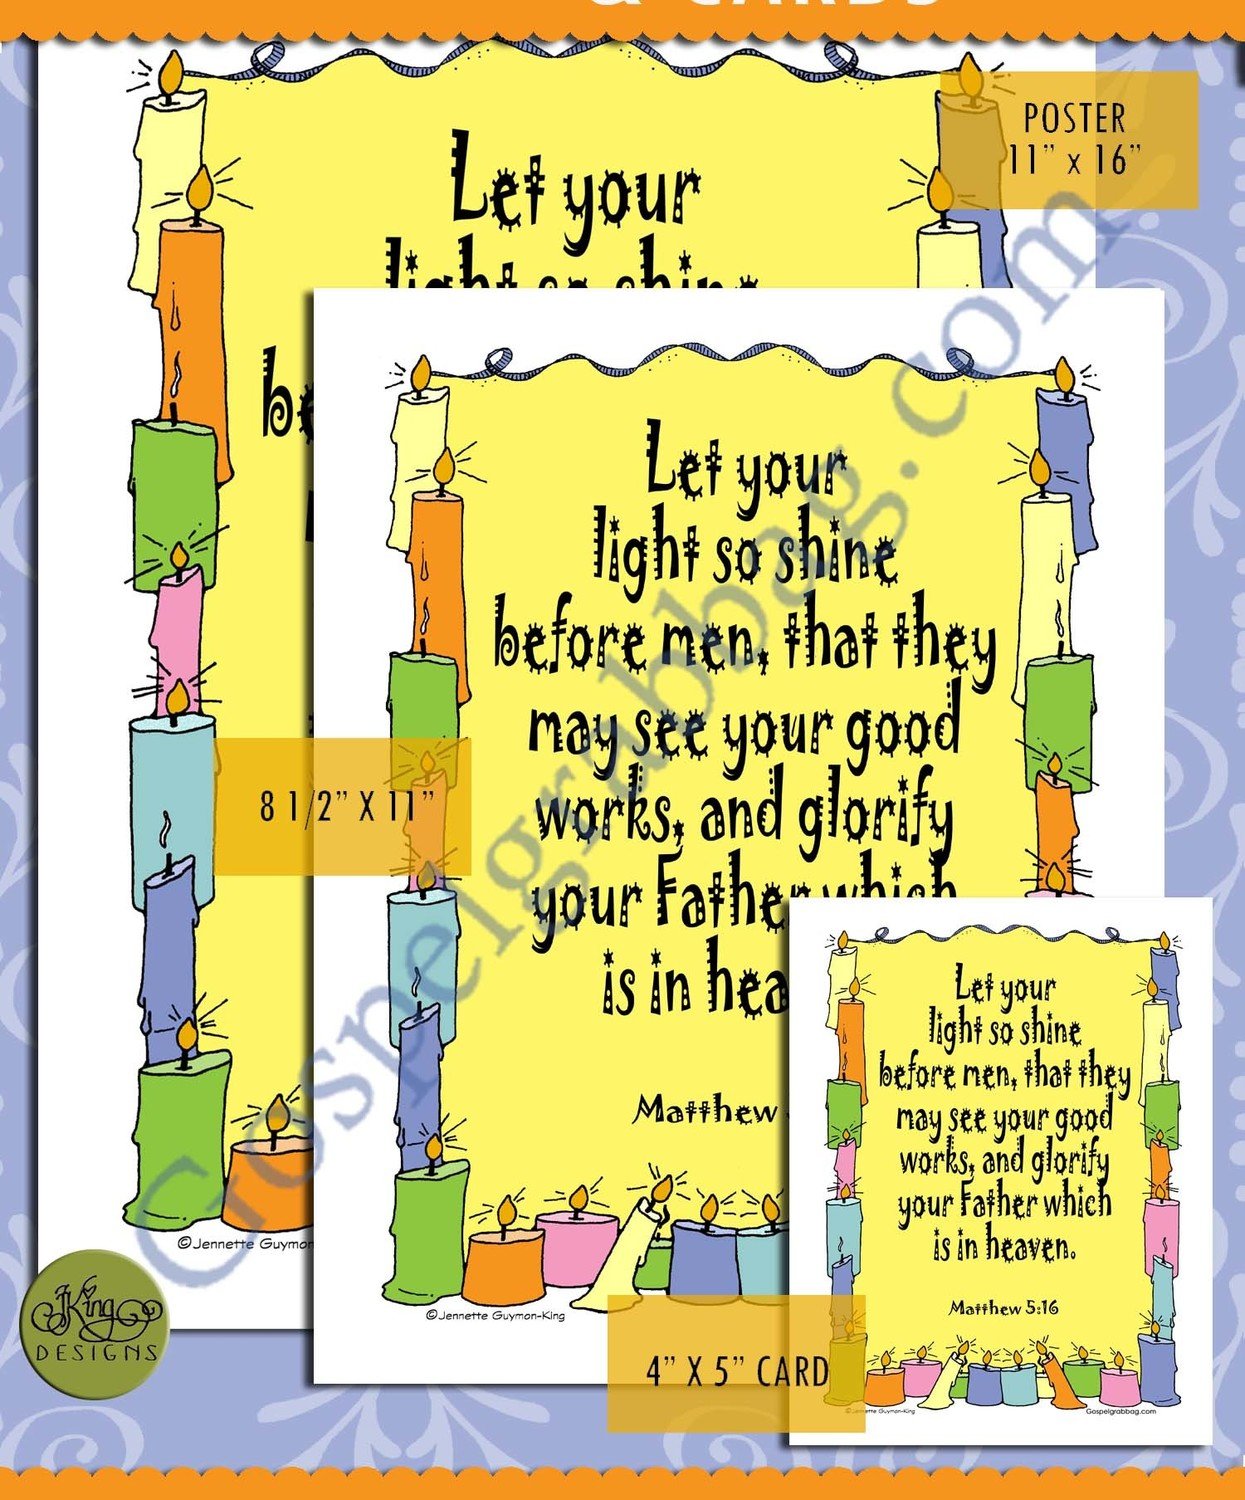 & CARDS
POSTER
11” x 16”
Let your
light so shine
be
©Jennette Guymon
8 1/2” X 11”
Let your
light so shine
before men, that they
may see your good
works, and glorify
your Father which
is in hea
Matthew
©Jennette Guymon-King
4” X 5” CARD
Let your
light so shine
before men, that they
may see your good
works, and glorify
your Father which
is in heaven.
Matthew 5:16
©Jennette Guymon-King
Gospelgrabbag.com
JKing
DESIGNS
Gospelgrabbag.com